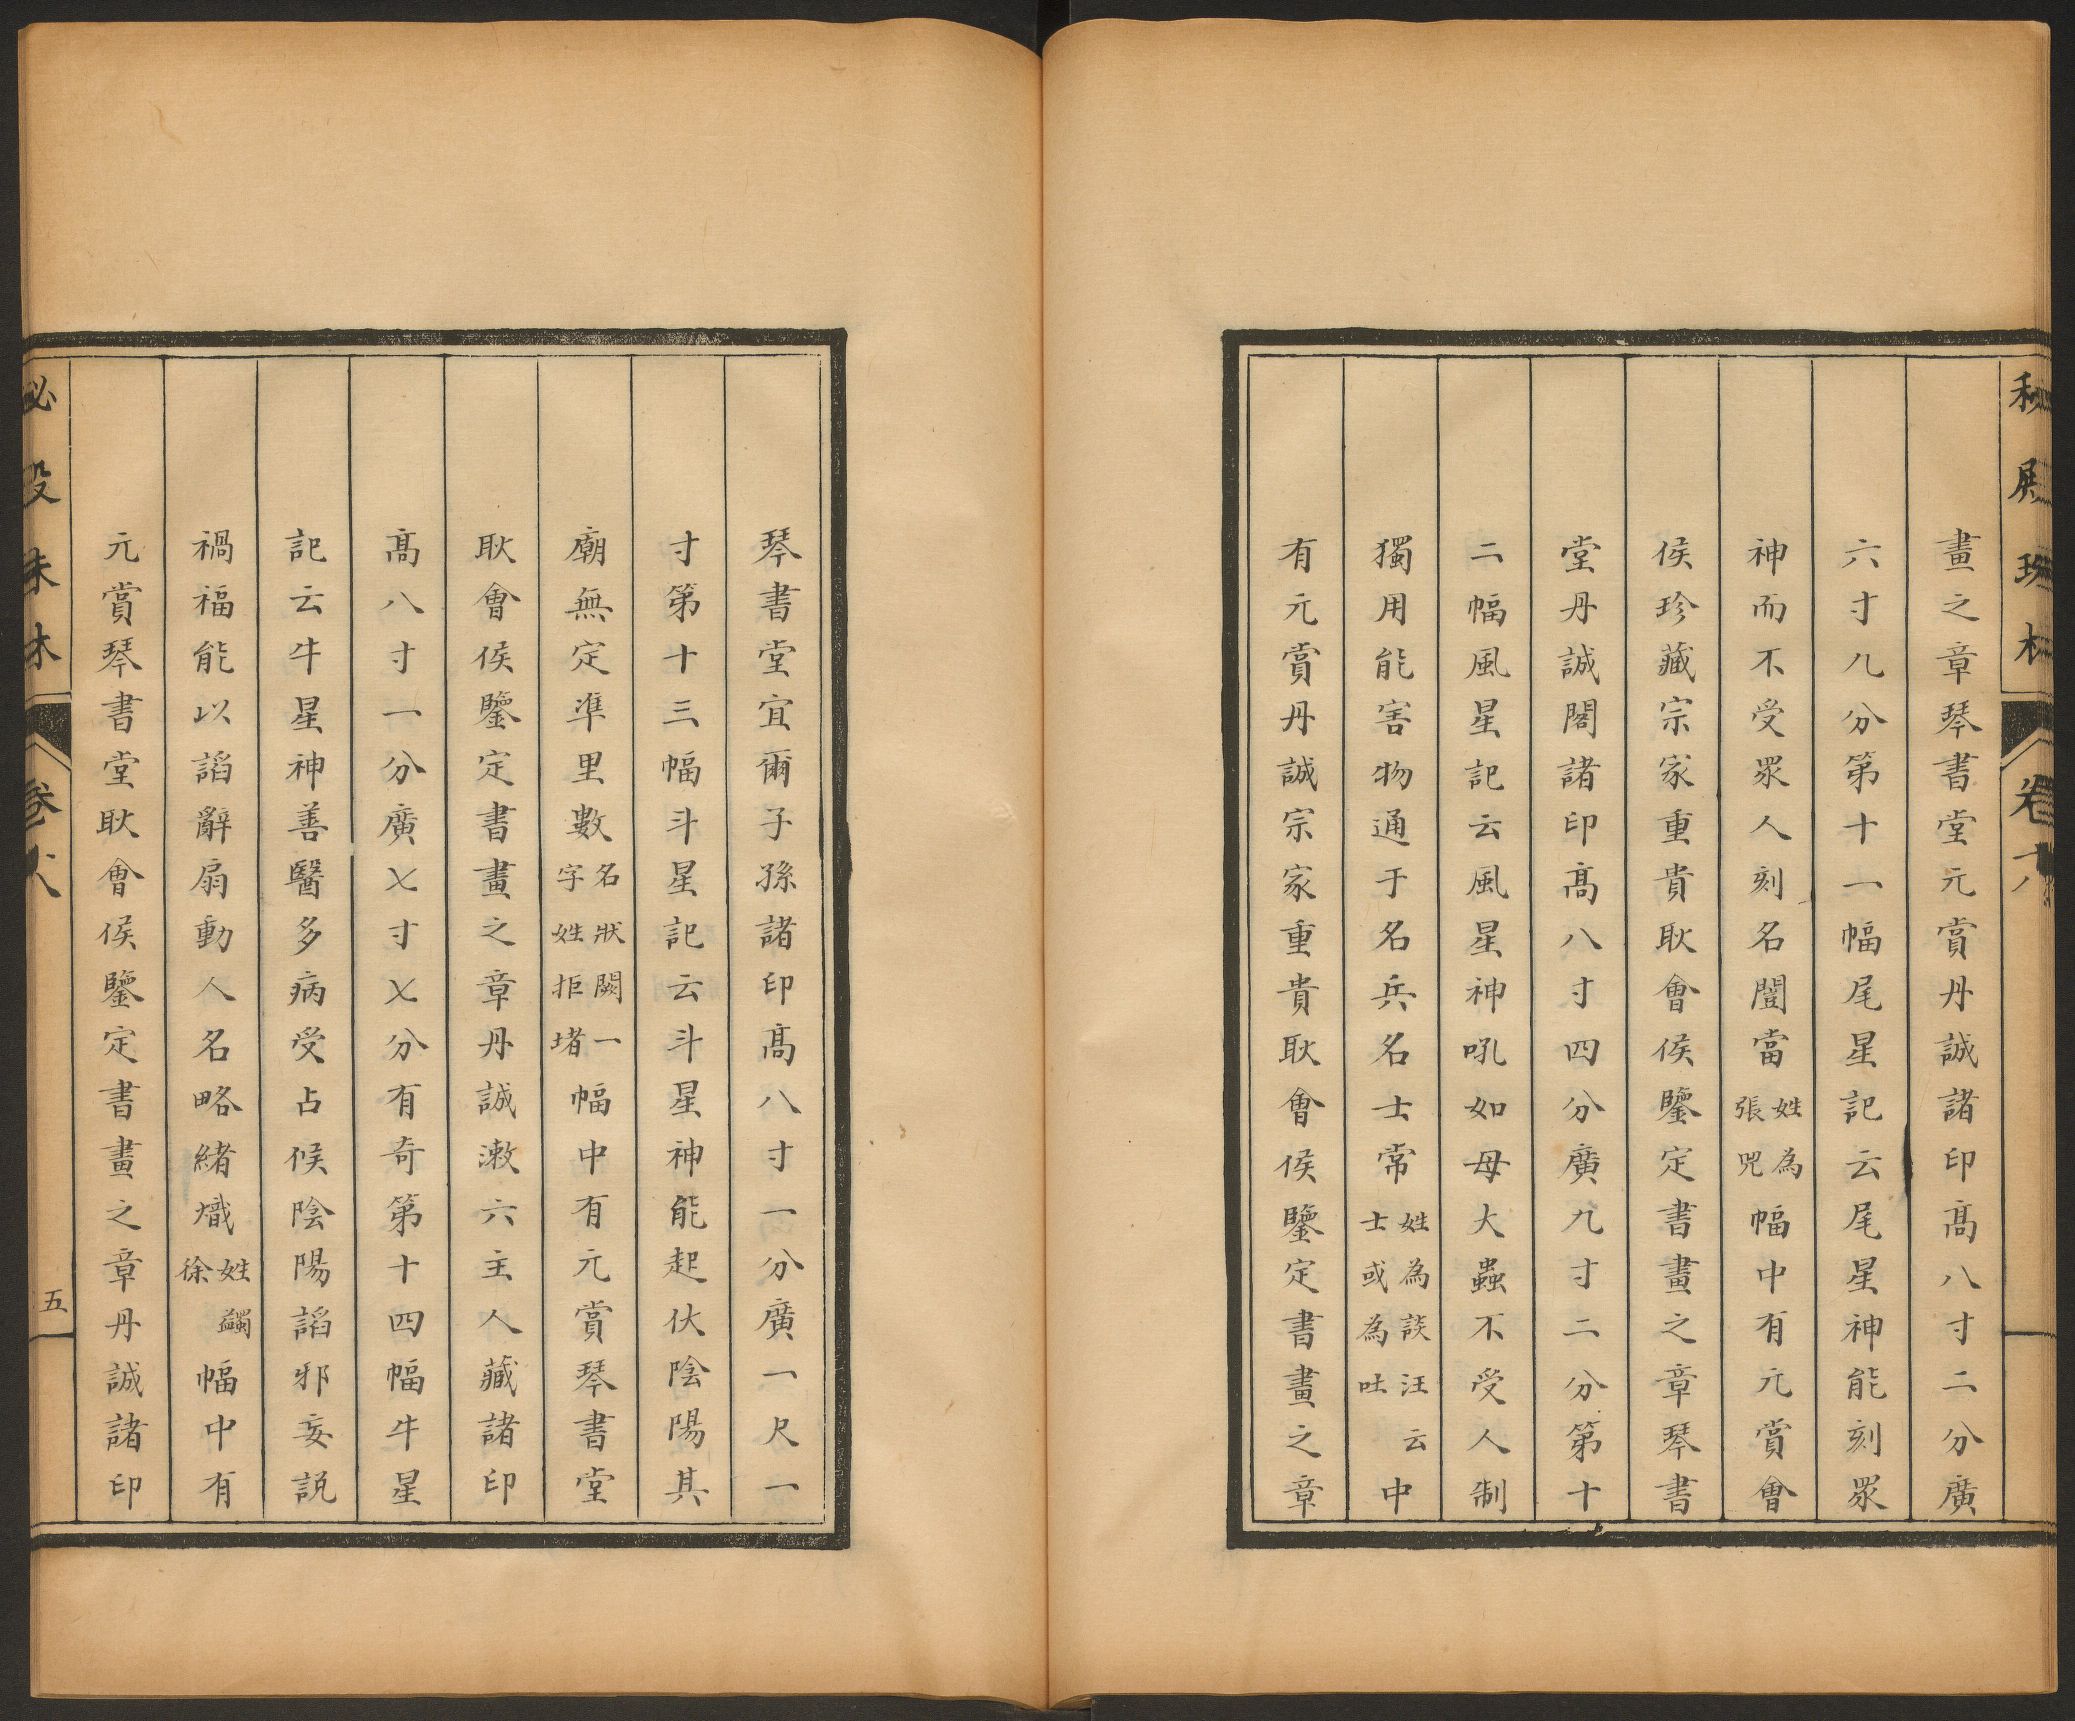 畫之章琴書堂元賞丹誠諸印高八寸二分廣
六寸八分第十一幅尾星記云尾星神能刻眾
神而不受眾人刻名闓當姓為張兕幅中有元賞會
侯珍藏宗家重貴耿會侯鑒定書畫之章琴書
堂丹誠閣諸印高八寸四分廣九寸二分第十
二幅風星記云風星神吼如母大蟲不受人制
獨用能害物通于名兵名士常姓為談汪云士或為吐中
有元賞丹誠宗家重貴耿會侯鑒定書畫之章
琴書堂宜爾子孫諸印高八寸一分廣一尺一
寸第十三幅斗星記云斗星神能起伏陰陽其
廟無定準里數名狀闕一字姓拒堵幅中有元賞琴書堂
耿會侯鑒定書畫之章丹誠漱六主人藏諸印
高八寸一分廣七寸七分有奇第十四幅牛星
記云牛星神善醫多病受占候陰陽謟邪妄説
禍福能以謟辭扇動人名略緒熾姓蠲徐幅中有
元賞琴書堂耿會侯鑒定書畫之章丹誠諸印
五